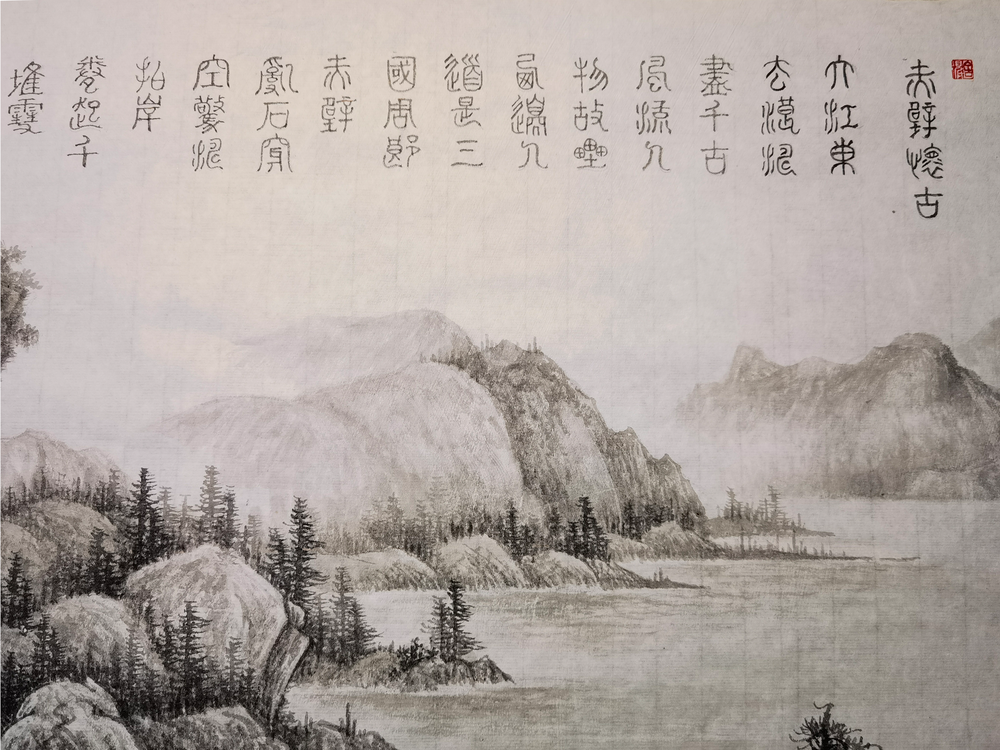 赤壁懷古
大江東
去
盡千古
風流人
物故壘
西邊人
道是三
國周郎
赤壁
亂石穿
空驚
拍岸
捲起千
堆雪